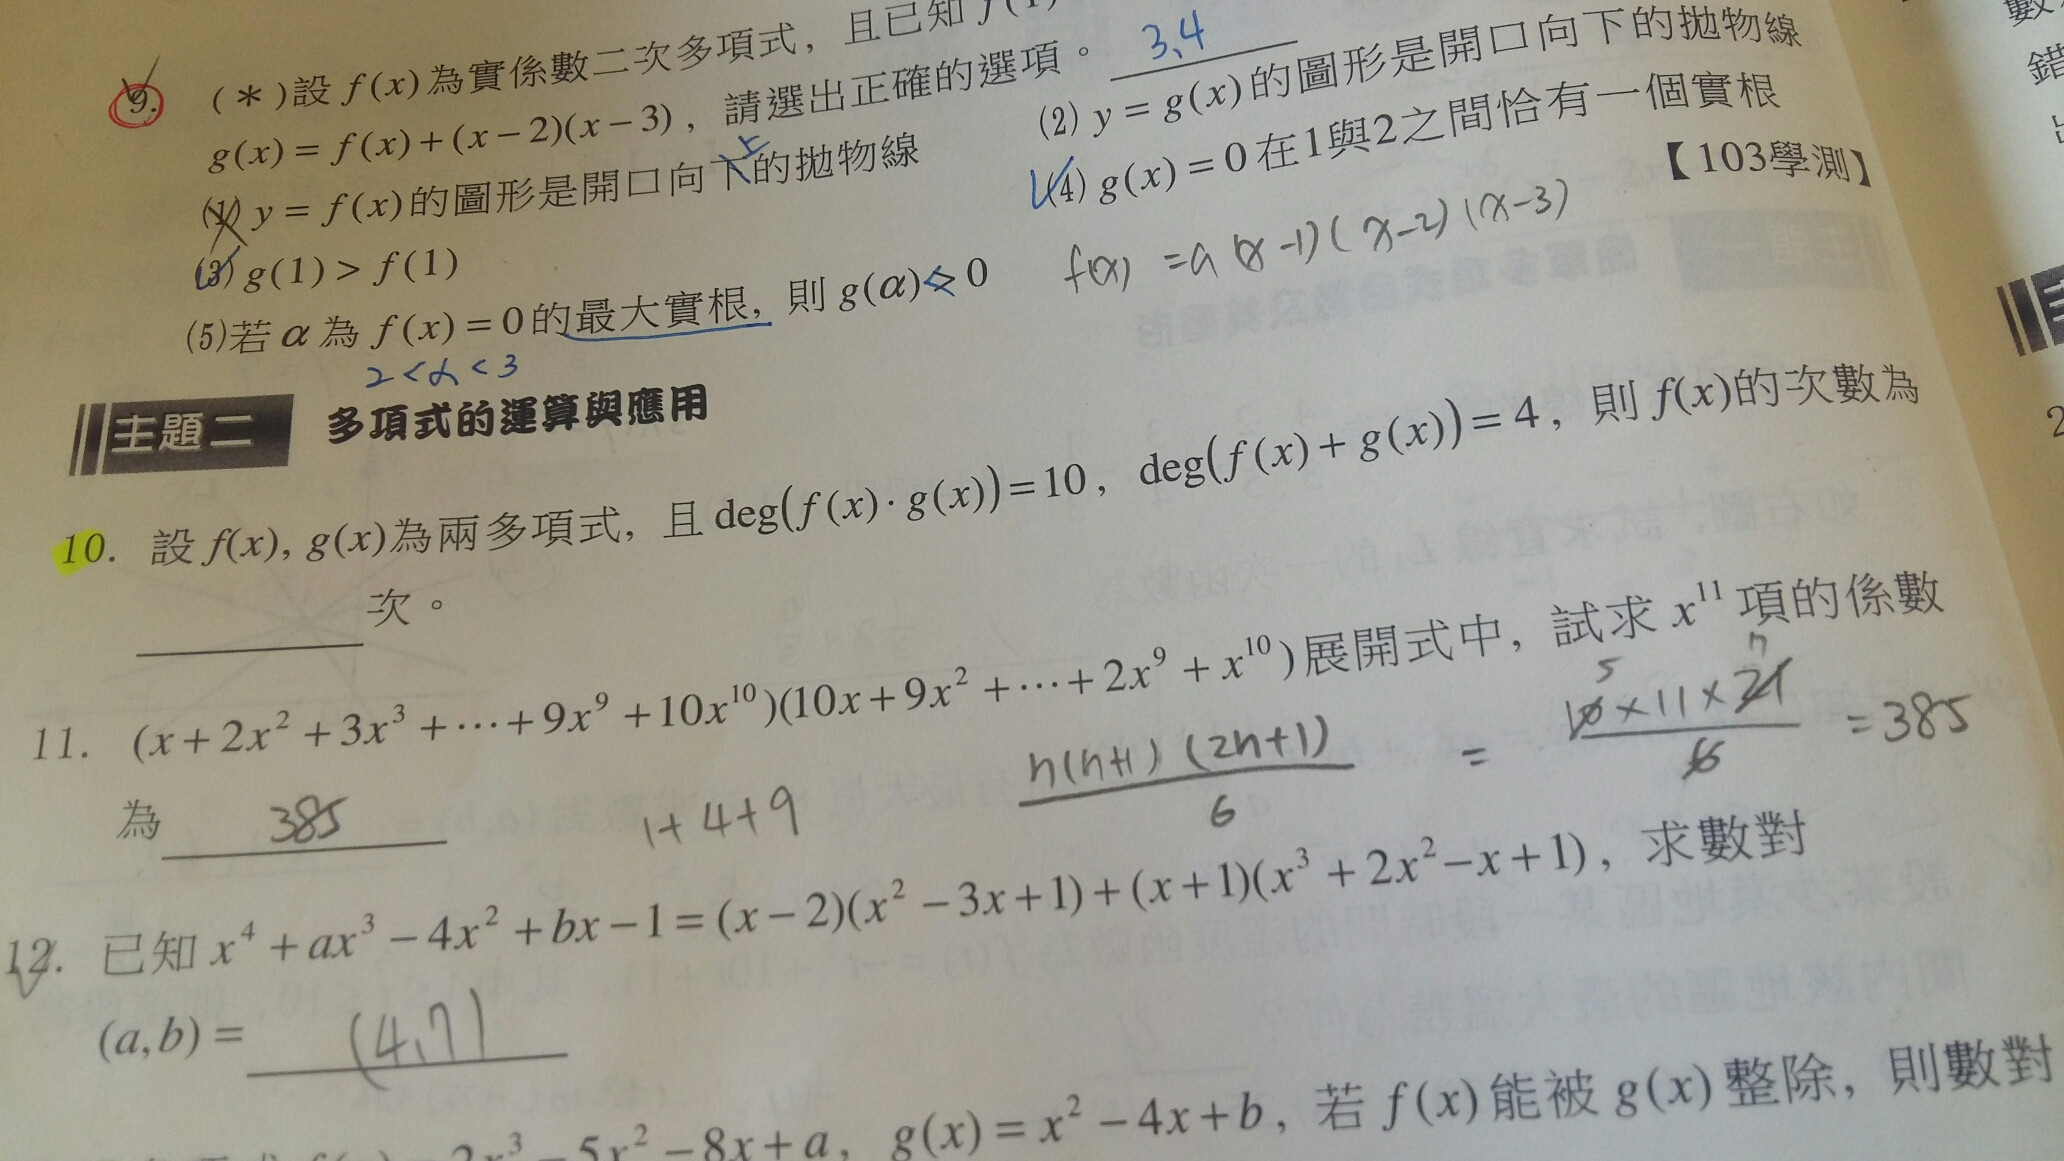 9. (＊)設 f(x) 為實係數二次多項式，且已知 f(1)
g(x) = f(x) + (x − 2)(x − 3)，請選出正確的選項。 3、4
(1) y = f(x) 的圖形是開口向下的拋物線 上
(2) y = g(x) 的圖形是開口向下的拋物線
(3) g(1) > f(1)
(4) g(x) = 0 在 1 與 2 之間恰有一個實根
【103學測】
(5)若 α 為 f(x) = 0 的最大實根，則 g(α) > 0
f(x) = a(x−1)(x−2)(x−3)
2 < α < 3
主題二 多項式的運算與應用
10. 設 f(x), g(x) 為兩多項式，且 deg(f(x)·g(x)) = 10，deg(f(x) + g(x)) = 4，則 f(x) 的次數為
次。
11. (x + 2x² + 3x³ + ⋯ + 9x⁹ + 10x¹⁰)(10x + 9x² + ⋯ + 2x⁹ + x¹⁰) 展開式中，試求 x¹¹ 項的係數
為 385
1 + 4 + 9
n(n+1)(2n+1)/6 = 10×11×21/6 = 385
5 7
12. 已知 x⁴ + ax³ − 4x² + bx − 1 = (x − 2)(x² − 3x + 1) + (x + 1)(x³ + 2x² − x + 1)，求數對
(a, b) = (4, 7)
5x² − 8x + a，g(x) = x² − 4x + b，若 f(x) 能被 g(x) 整除，則數對